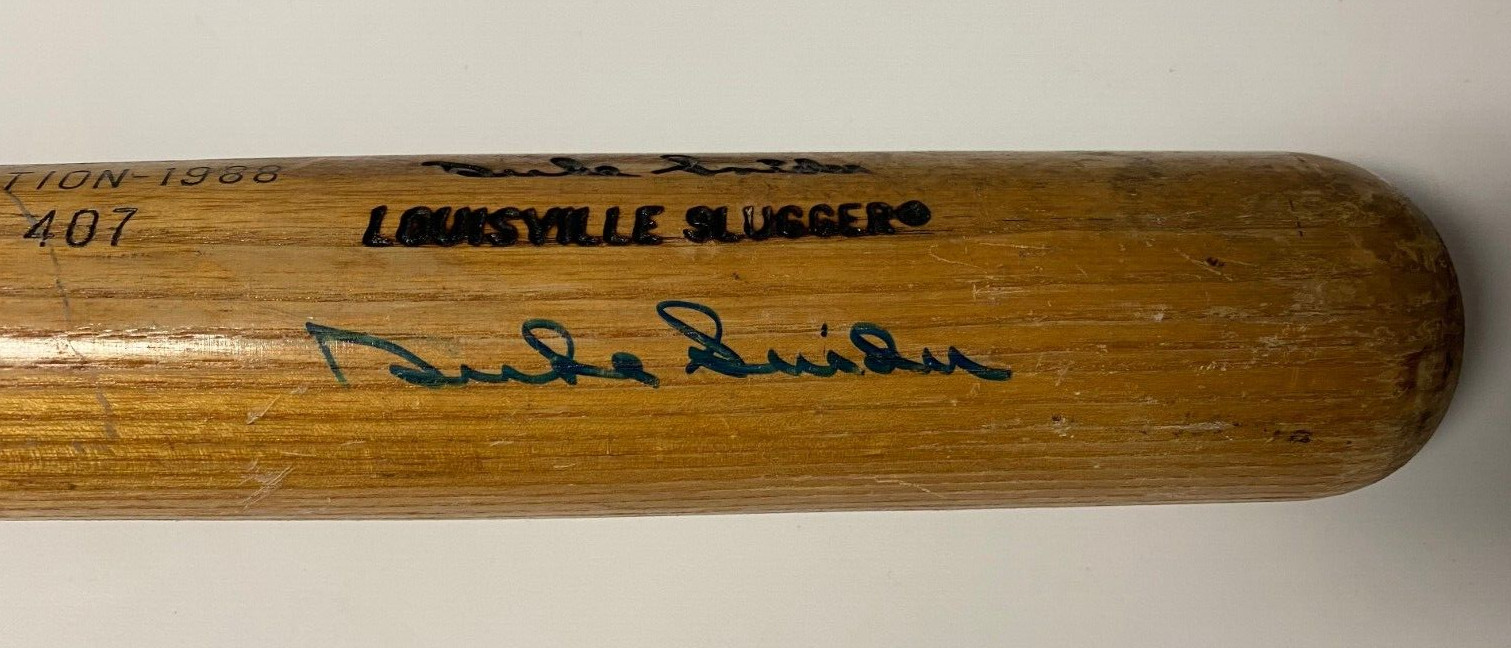 TION-1988
407
Duke Snider
LOUISVILLE SLUGGER®
Duke Snider